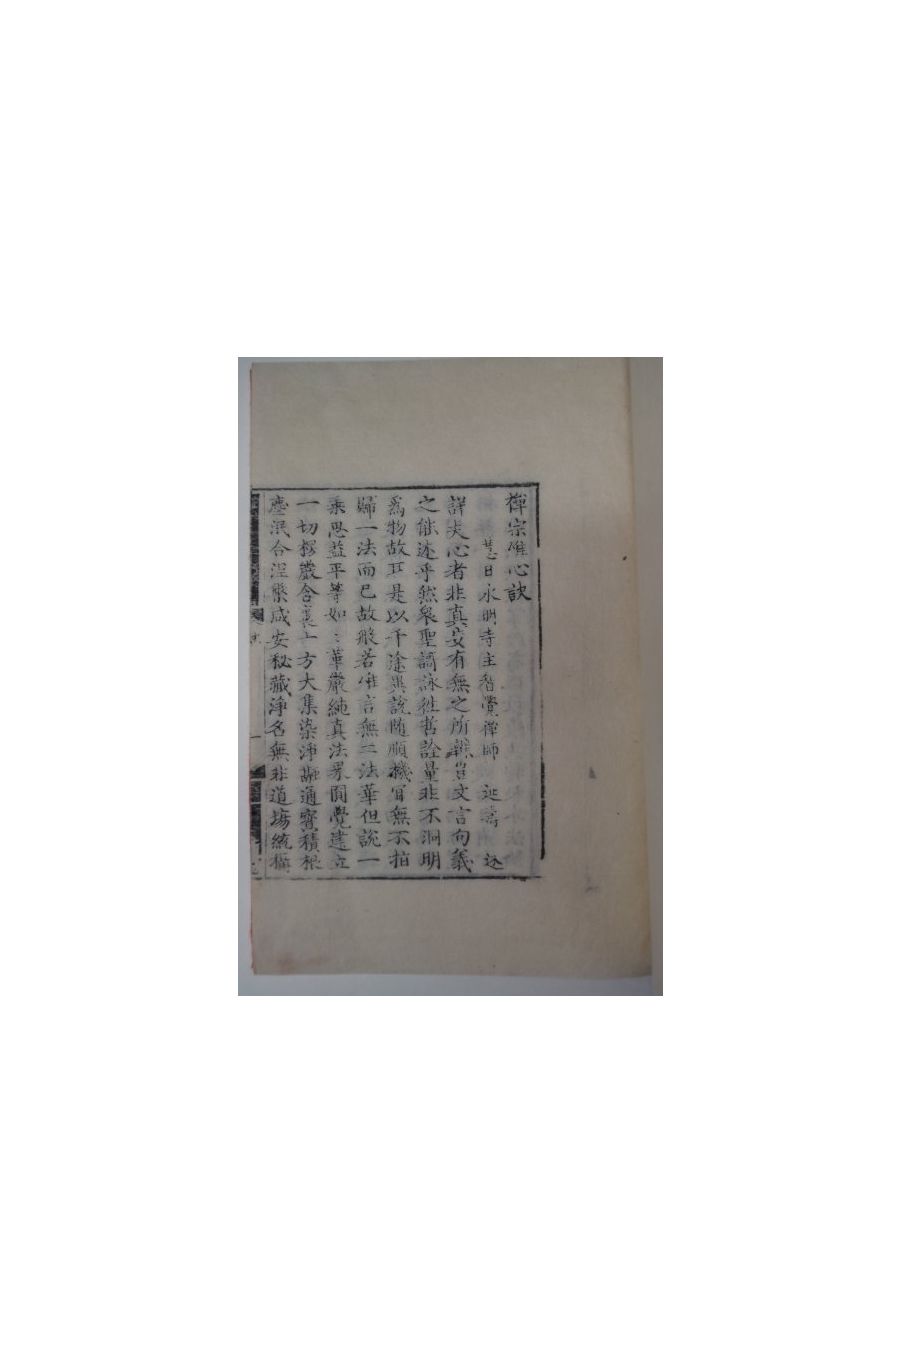 禪宗唯心訣
慧日永明寺主智覺禪師 延壽 述
詳夫心者非真妄有無之所辨豈文言句義
之能述乎然衆聖謌詠徃哲詮量非不洞明
爲物故耳是以千途異說隨順機宜無不指
歸一法而已故般若唯言無二法華但說一
乘思益平等如如華嚴純真法界圓覺建立
一切楞嚴含裹十方大集染淨融通寶積根
塵泯合涅槃咸安秘藏淨名無非道場統稱